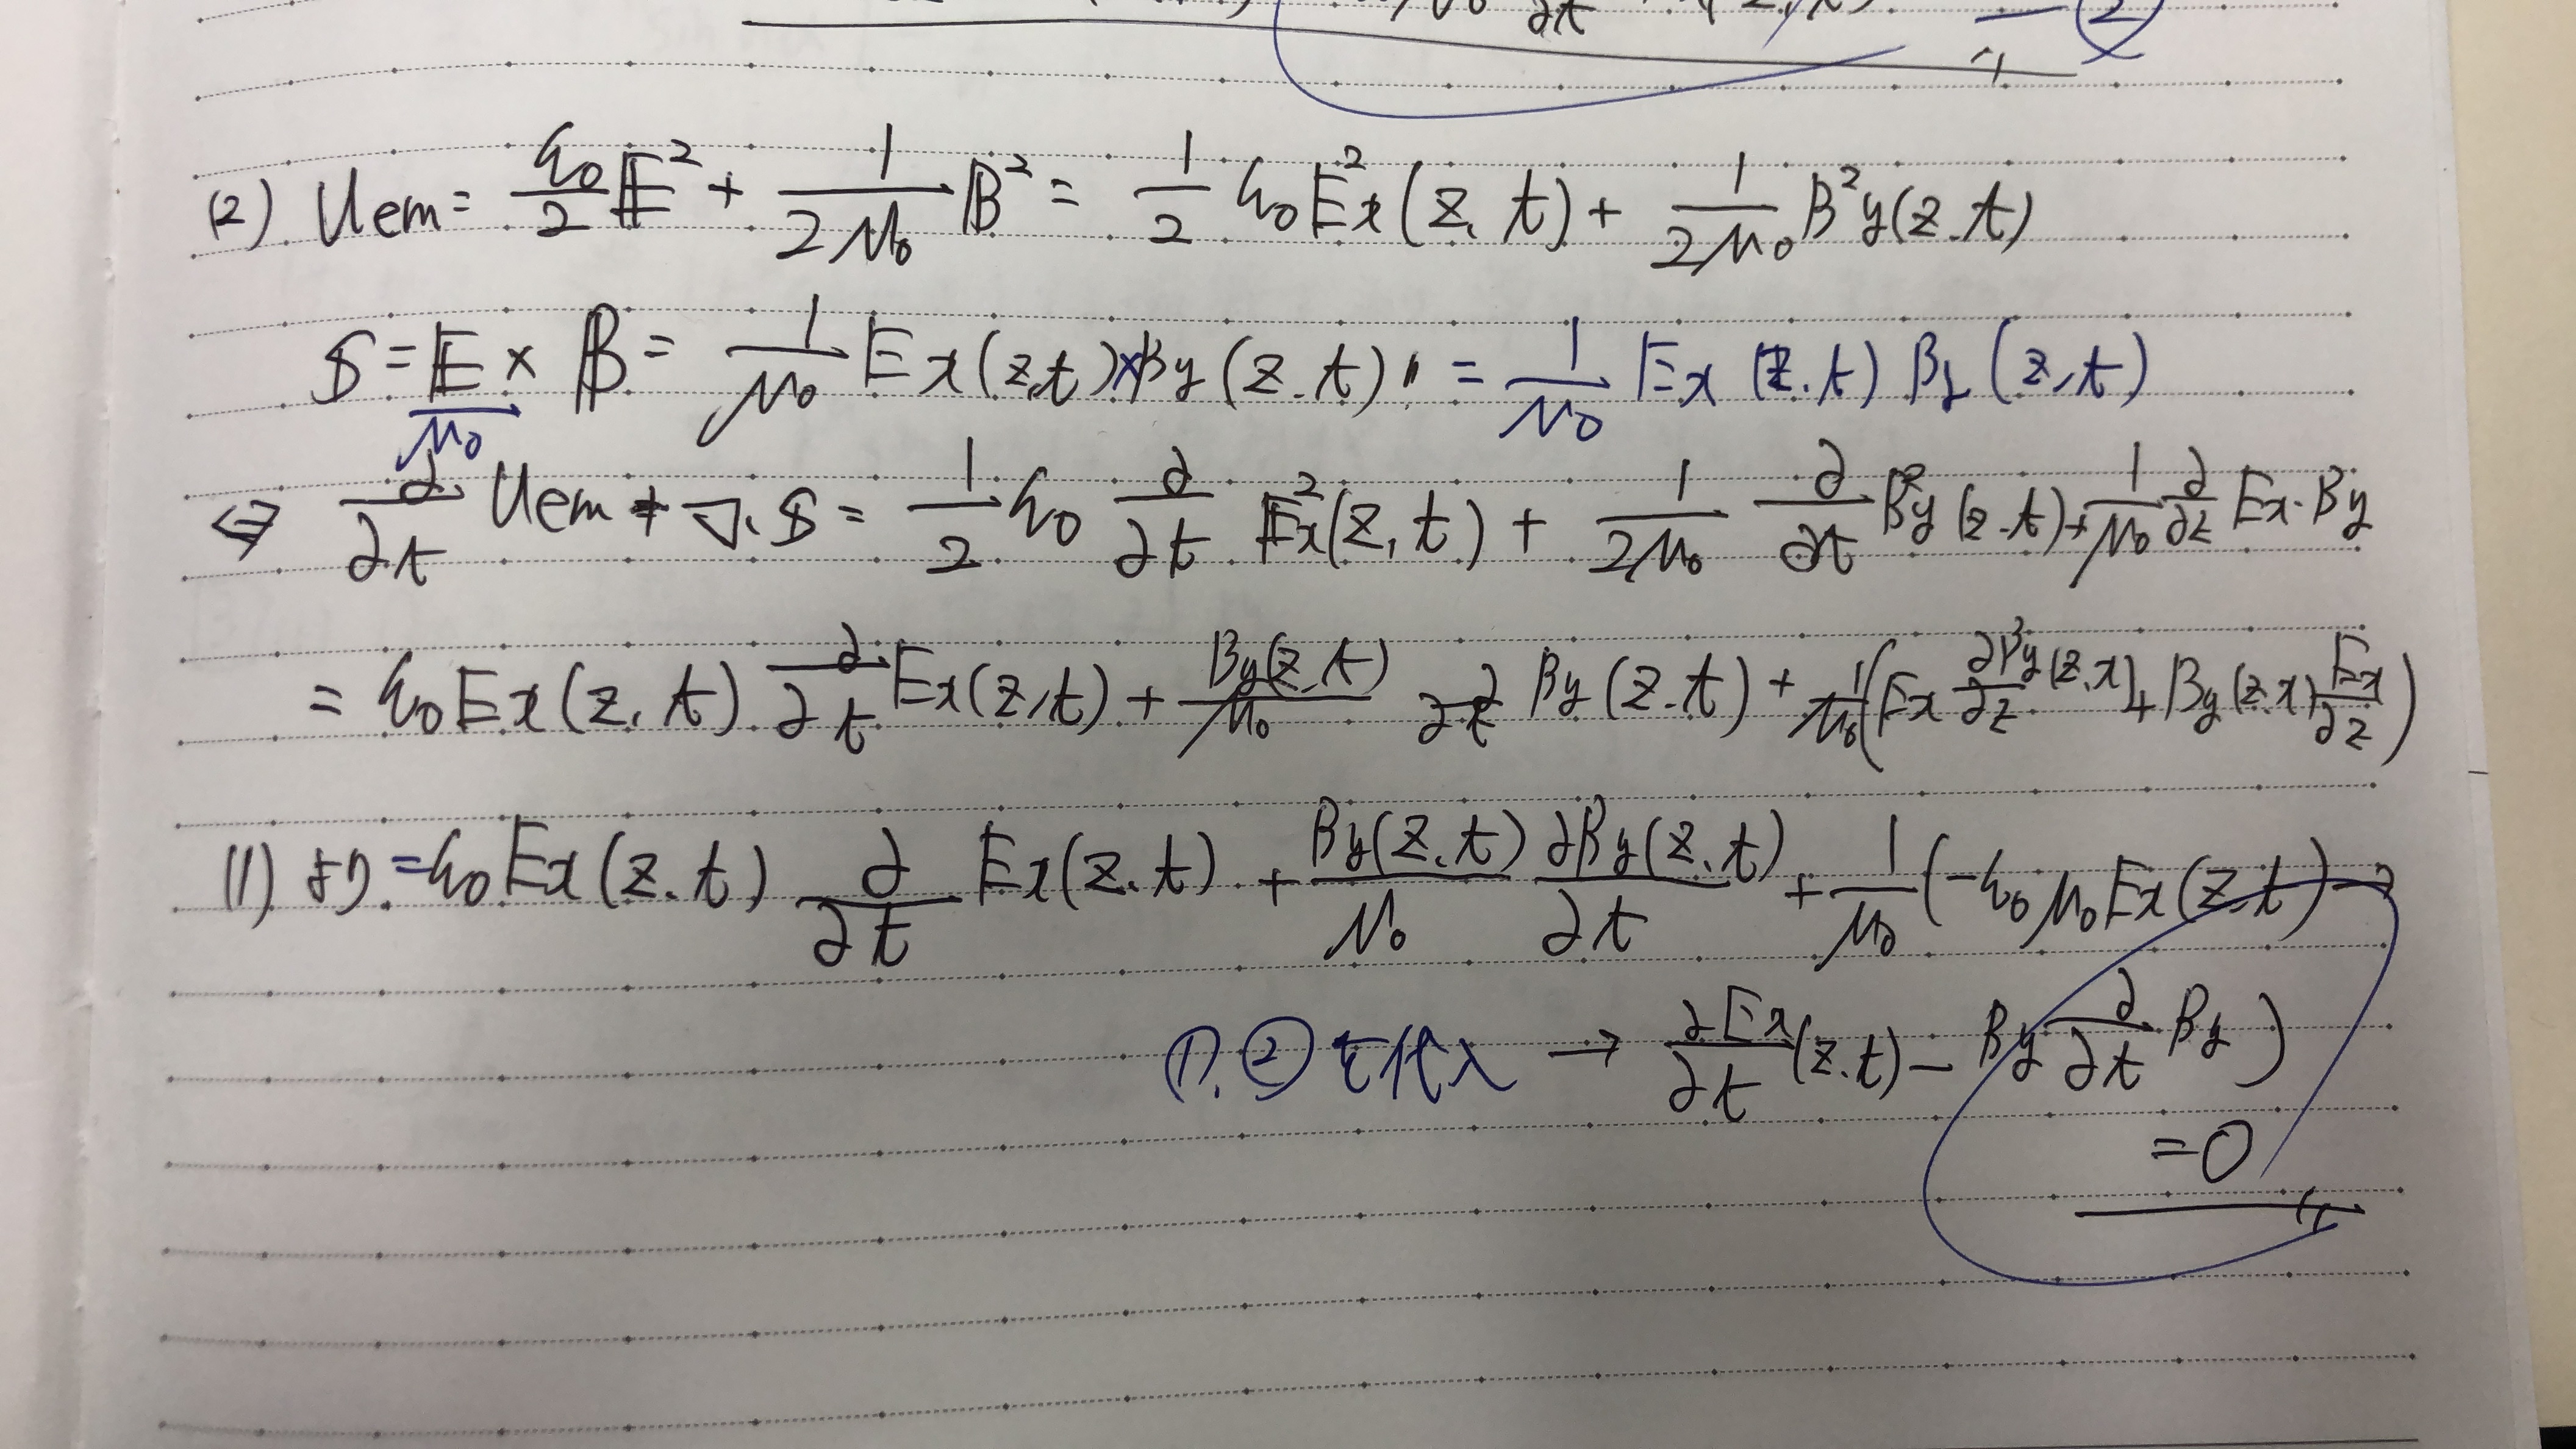 ∂t ②
(2) Uem = ε₀/2 𝔼² + 1/2μ₀ 𝔹² = 1/2 ε₀E²x(z, t) + 1/2μ₀ B²y(z.t)
𝕊 = 𝔼/μ₀ × 𝔹 = 1/μ₀ Ex(z,t)×By(z.t) = 1/μ₀ Ex(z.t) By(z,t)
⇔ ∂/∂t Uem + ∇.𝕊 = 1/2 ε₀ ∂/∂t E²x(z,t) + 1/2μ₀ ∂/∂t B²y(z.t) + 1/μ₀ ∂/∂z Ex.By
= ε₀Ex(z,t) ∂/∂t Ex(z,t) + By(z.t)/μ₀ ∂/∂t By(z.t) + 1/μ₀(Ex ∂By/∂z(z.t) + By(z.t) Ex/∂z)
(1)より =ε₀Ex(z.t) ∂/∂t Ex(z.t) + By(z.t)/μ₀ ∂By(z.t)/∂t + 1/μ₀(-ε₀μ₀Ex(z.t)→
①.②を代入 → ∂Ex/∂t(z.t) - By ∂/∂t By)
=0